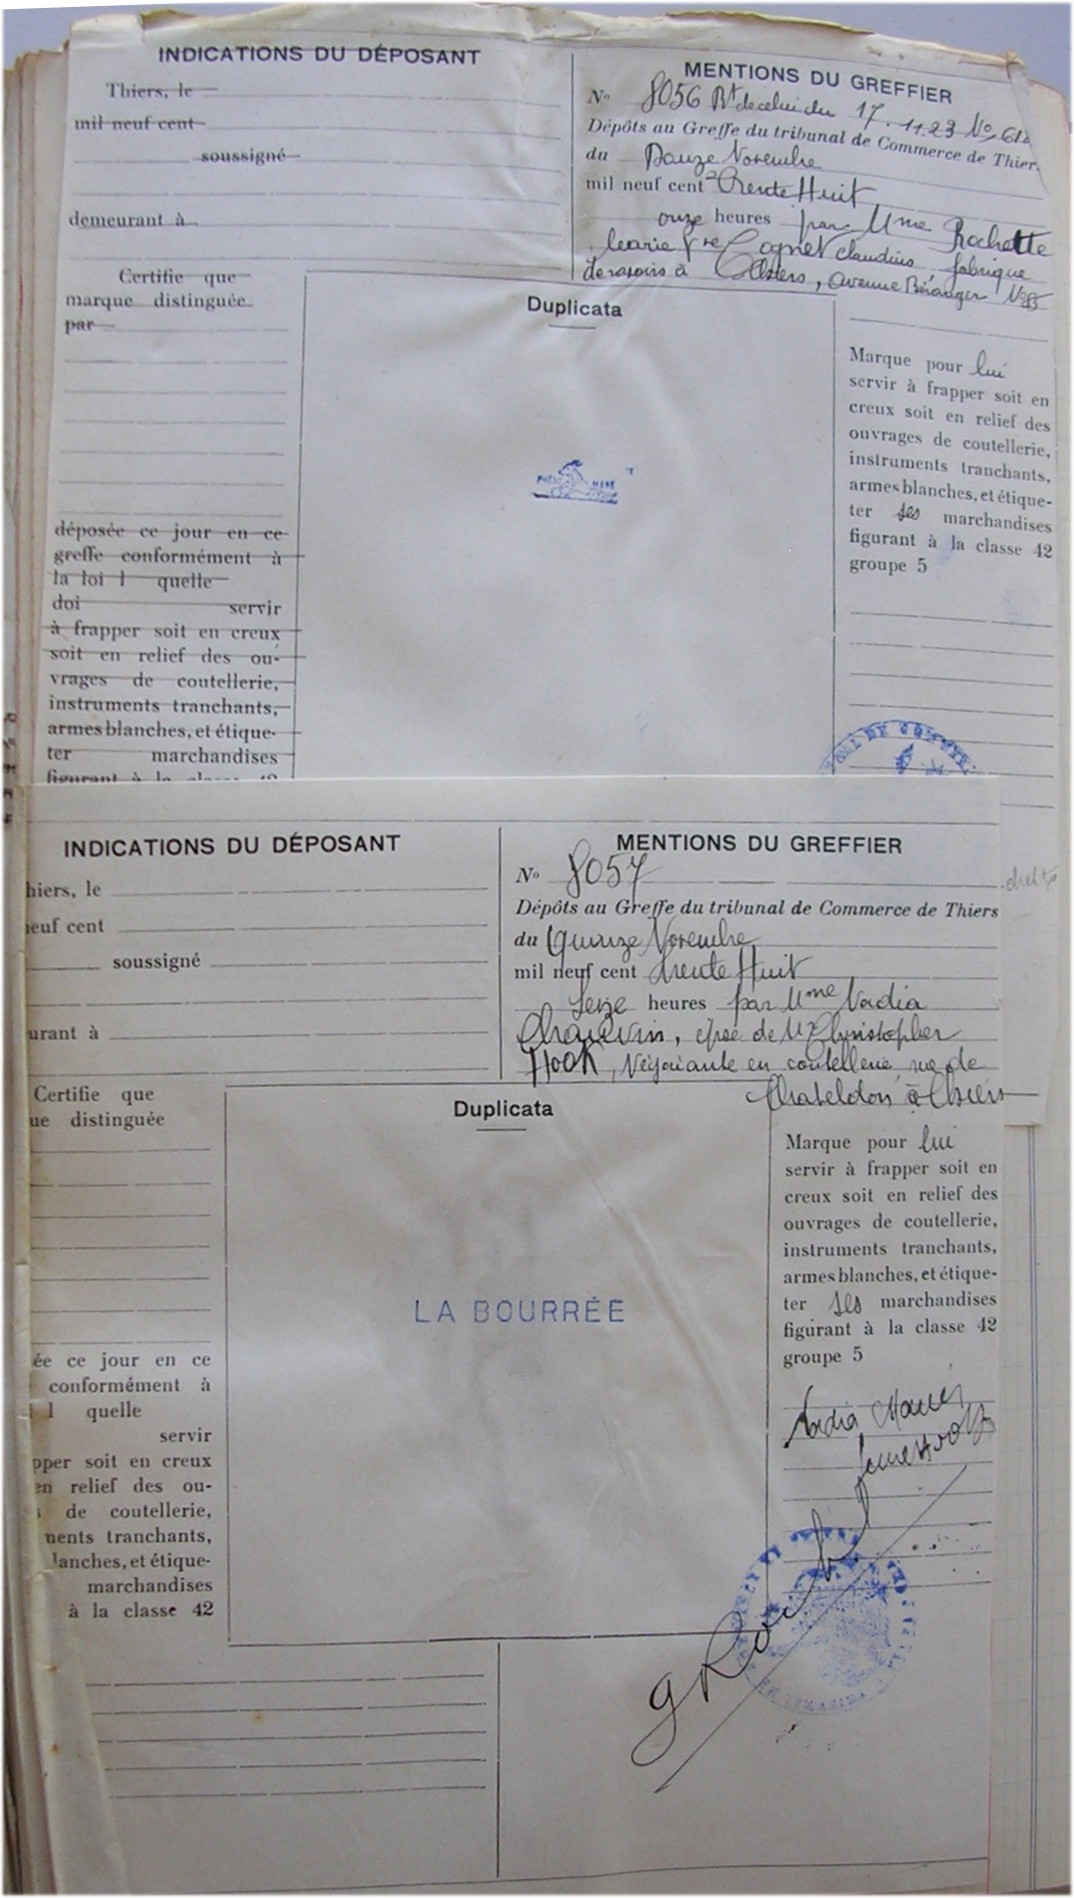 INDICATIONS DU DÉPOSANT
Thiers, le
mil neuf cent
soussigné
demeurant à
Certifie que
marque distinguée
par
déposée ce jour en ce
greffe conformément à
la loi l quelle
doi servir
à frapper soit en creux
soit en relief des ou-
vrages de coutellerie,
instruments tranchants,
armes blanches, et étique-
ter marchandises
figurant à la classe 42
MENTIONS DU GREFFIER
No 8056 Rt de celui du 17.11.23 No 612
Dépôts au Greffe du tribunal de Commerce de Thier
du Douze Novembre
mil neuf cent Trente Huit
onze heures par Mme Rochette
Marie Vve Cognet Claudius, fabrique
de rasoirs à Thiers, avenue Béranger No 85
Duplicata
PHÉNO MÈNE
Marque pour lui
servir à frapper soit en
creux soit en relief des
ouvrages de coutellerie,
instruments tranchants,
armes blanches, et étique-
ter ses marchandises
figurant à la classe 42
groupe 5
INDICATIONS DU DÉPOSANT
hiers, le
neuf cent
soussigné
urant à
Certifie que
ue distinguée
ée ce jour en ce
conformément à
l quelle
servir
pper soit en creux
en relief des ou-
s de coutellerie,
ments tranchants,
lanches, et étique-
marchandises
à la classe 42
MENTIONS DU GREFFIER
No 8057
Dépôts au Greffe du tribunal de Commerce de Thiers
du Quinze Novembre
mil neuf cent trente Huit
Seize heures par Mme Nadia
Chauvin, épse de Mr Christopher
Hook, Négociante en coutellerie, rue de
Chateldon à Thiers
Duplicata
LA BOURRÉE
Marque pour lui
servir à frapper soit en
creux soit en relief des
ouvrages de coutellerie,
instruments tranchants,
armes blanches, et étique-
ter ses marchandises
figurant à la classe 42
groupe 5
Nadia